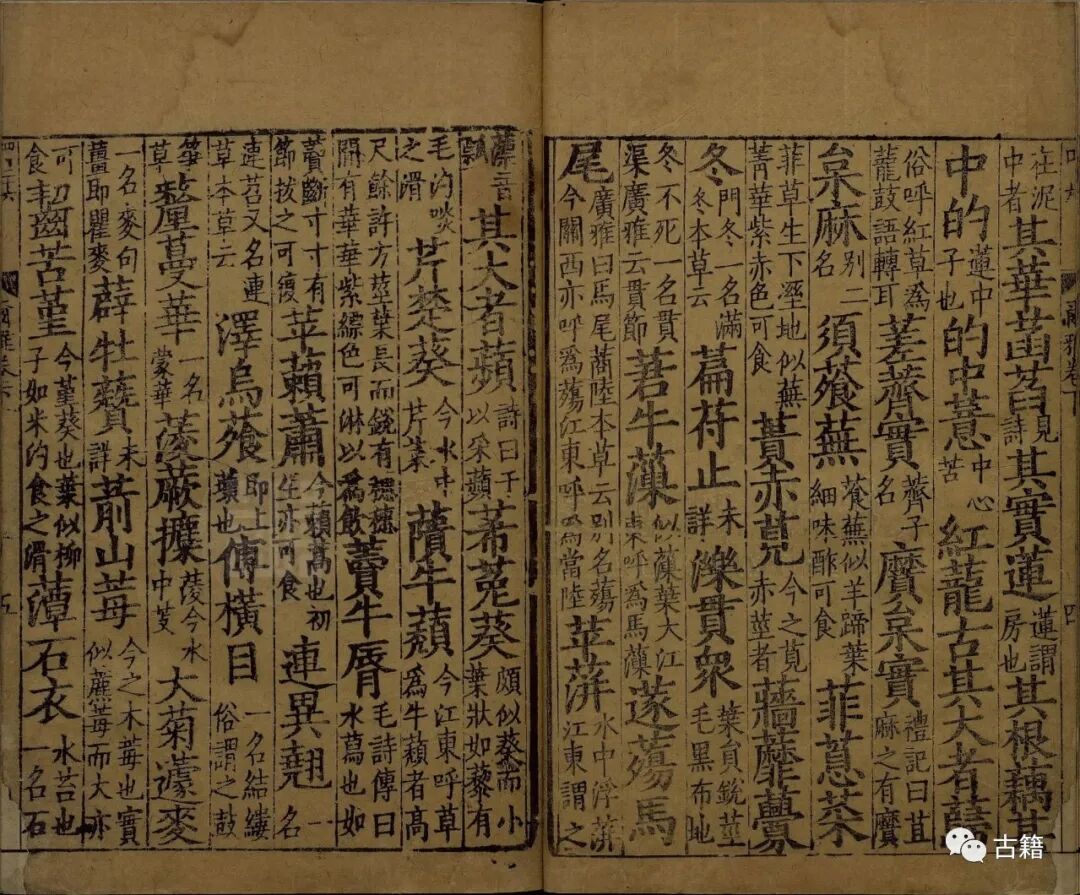 爾雅卷下 四
在泥中者其華菡萏見詩其實蓮蓮謂房也其根藕其
中的蓮中子也的中薏中心苦紅蘢古其大者蘬
俗呼紅草為蘢鼓語轉耳蒫薺實薺子名黂枲實禮記曰苴麻之有黂
枲麻別二名須薞蕪薞蕪似羊蹄葉細味酢可食菲蒠菜
菲草生下溼地似蕪菁華紫赤色可食蕢赤莧今之莧赤莖者蘠蘼虋
冬門冬一名滿冬本草云萹苻止未詳濼貫衆葉負銳莖毛黑布地
冬不死一名貫渠廣雅云貫節莙牛藻似藻葉大江東呼為馬藻蓫薚馬
尾廣雅曰馬尾蔏陸本草云別名薚今關西亦呼為薚江東呼為當陸苹蓱水中浮蓱江東謂之
薸音瓢其大者蘋詩曰于以采蘋莃菟葵頗似葵而小葉狀如藜有
毛汋啖之滑芹楚葵今水中芹菜藬牛蘈今江東呼草為牛蘈者高
尺餘許方莖葉長而銳有穗穗間有華華紫縹色可淋以為飲藚牛脣毛詩傳曰水蕮也如
藚斷寸寸有節拔之可復苹藾蕭今藾蒿也初生亦可食連異翹一名
連苕又名連草本草云澤烏薞即上薞也傅橫目一名結縷俗謂之鼓
箏草釐蔓華一名蒙華蔆蕨攈蔆今水中芰大菊蘧麥
一名麥句薑即瞿麥薜牡䕠未詳葥山莓今之木莓也實似藨莓而大亦
可食齧苦堇今堇葵也葉似柳子如米汋食之滑藫石衣水苔也一名石
五
古籍